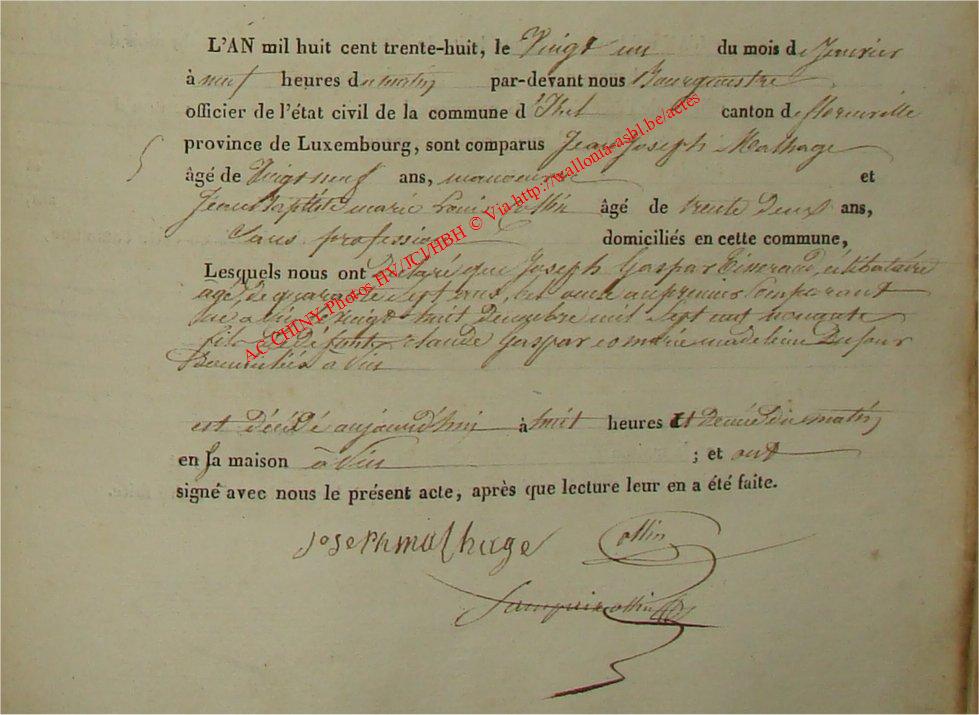 L'AN mil huit cent trente-huit, le Vingt un du mois de Janvier
à neuf heures du matin par-devant nous Bourgmestre
officier de l'état civil de la commune d' canton de florenville
province de Luxembourg, sont comparus Jean Joseph Mathage
âgé de Vingt neuf ans, manoeuvre et
Jean Baptiste marie Louis Collin âgé de trente deux ans,
Sans profession domiciliés en cette commune,
Lesquels nous ont déclaré que Joseph Gaspar Tisserand, célibataire
âgé de quarante sept ans, au premier Comparant
né à le vingt huit Decembre mil Sept cent nonante
fils des défunts Claude Gaspar et marie madeleine Dufour
Domiciliés à
est Décédé aujourd'hui à huit heures et Demie du matin
en sa maison à ; et ont
signé avec nous le présent acte, après que lecture leur en a été faite.
joseph mathage Collin
Collin
AC CHINY Photos HV/JCI/HBH © Via http://wallonia-asbl.be/actes